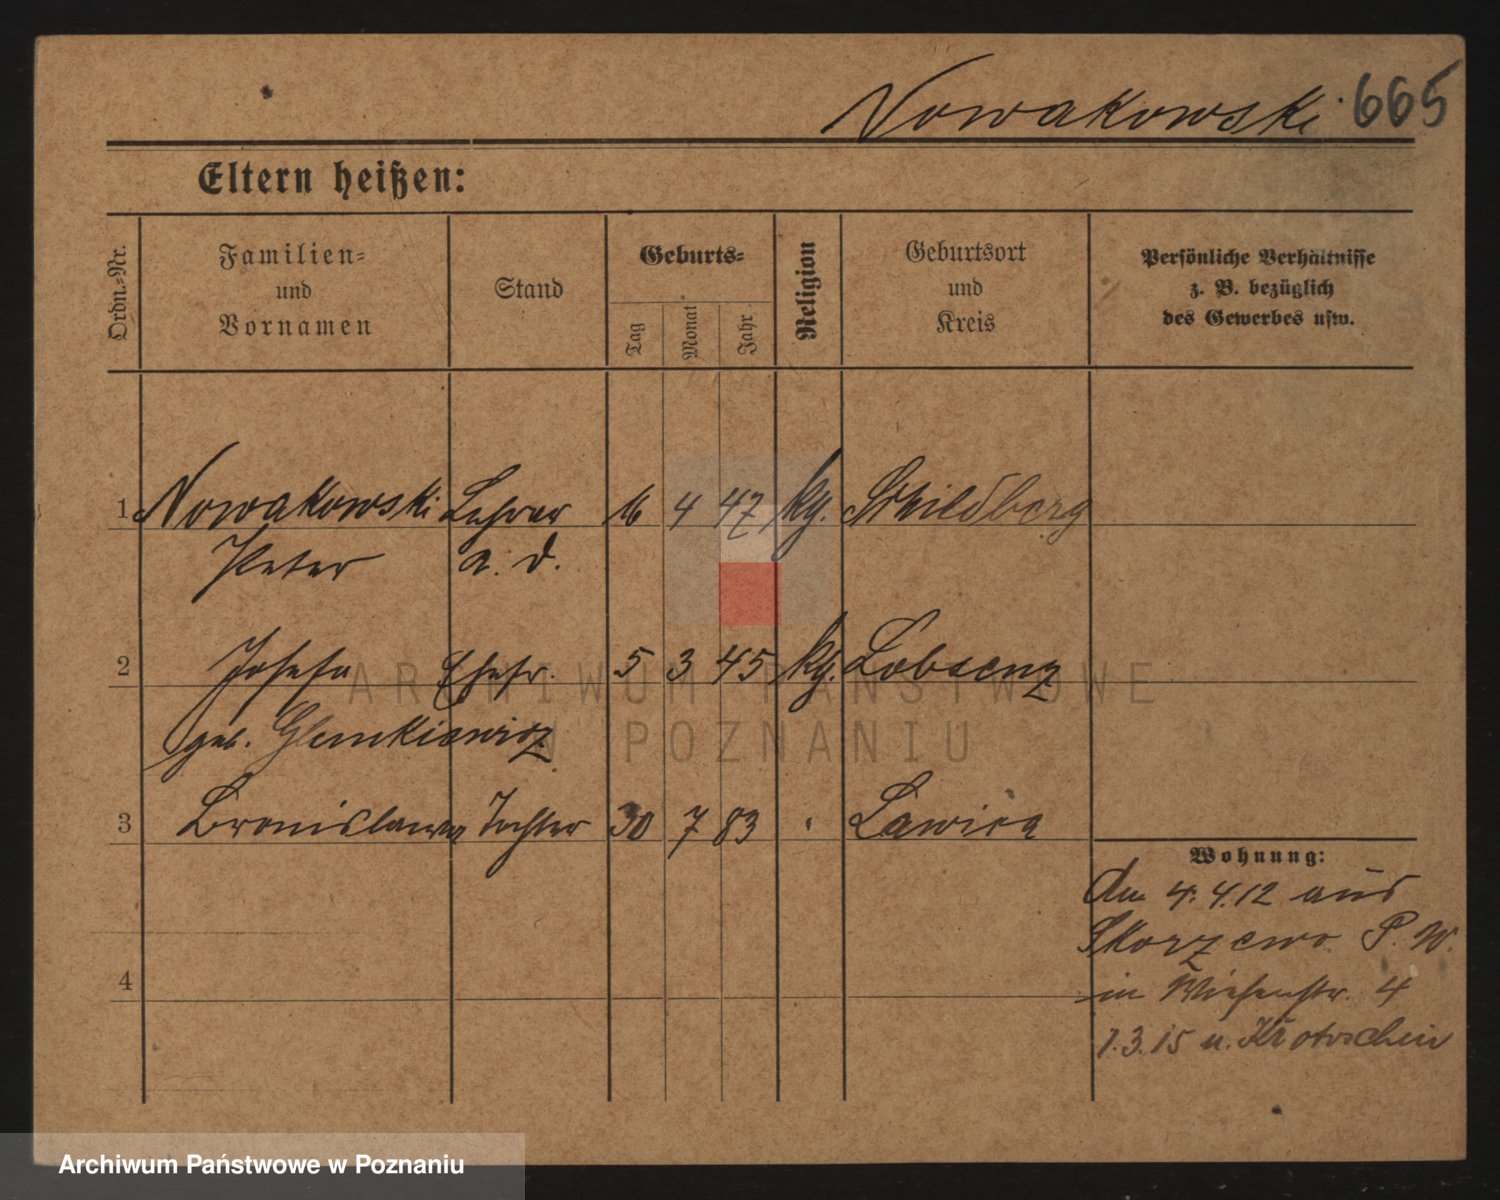 Nowakowski 665
Eltern heißen:
Ordn.-Nr.
Familien-
und
Vornamen
Stand
Geburts-
Tag
Monat
Jahr
Religion
Geburtsort
und
Kreis
Persönliche Verhältnisse
z. B. bezüglich
des Gewerbes usw.
1 Nowakowski Lehrer 16 4 47 kg. Schildberg
Peter a. D.
2 Josefa Ehefr. 5 3 45 kg. Lobsenz
geb. Glemkiewicz
3 Bronislawa Tochter 30 7 83 " Lawica
Wohnung:
Am 4.4.12 aus
Skorzewo P. W.
4
in Wiesenstr. 4
1.3.15 n. Krotoschin
ARCHIWUM PAŃSTWOWE
W POZNANIU
Archiwum Państwowe w Poznaniu